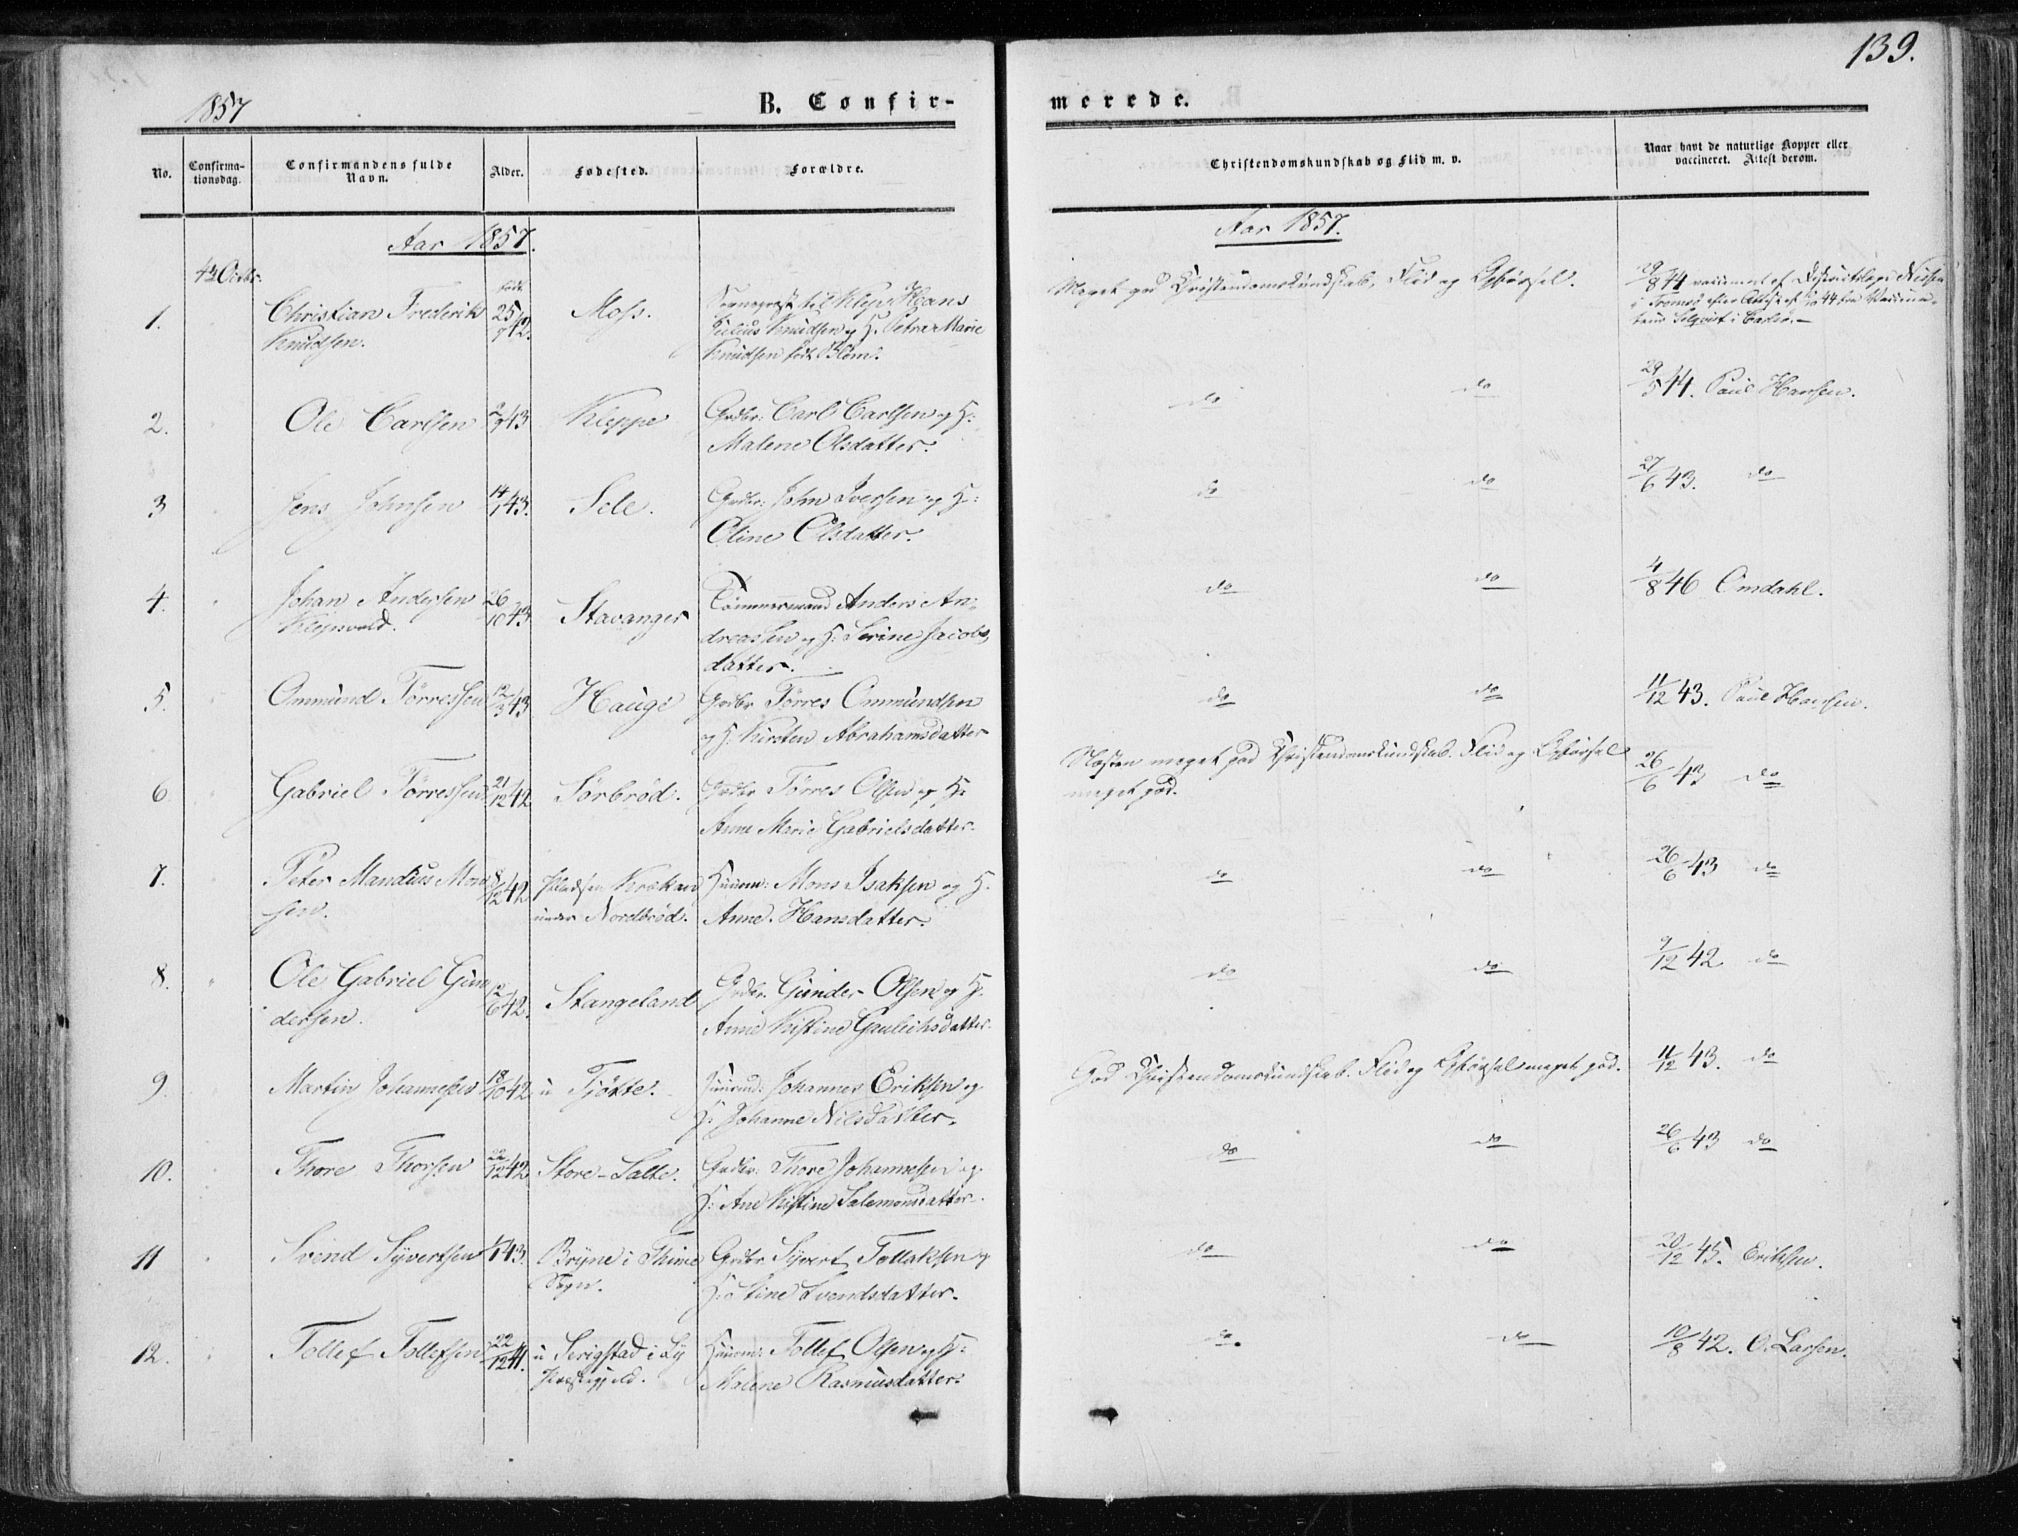 139.
1857
B. Confir-
merede.
No.
Confirma-
tionsdag.
Confirmandens fulde
Navn.
Alder.
Fødested.
Forældre.
Christendomskundskab og Flid m. v.
Naar havt de naturlige Kopper eller
vaccineret. Attest derom.
Aar 1857.
Aar 1857.
4de Octbr:
1.
Christian Frederik
Knudsen.
født
25/9 42.
Moss.
Sognepræst til Klep Hans
Julius Knudsen og H. Petra Marie
Knudsen født Blom.
Meget god Christendomskundskab, Flid og Opførsel.
29/8 44 vaccineret af
i Tromsø efter Attest af
2.
Ole Carlsen
2/7 43
Kleppe
Grdbr: Carl Carlsen og H:
Malene Olsdatter.
do
do
29/5 44. Paul Hansen.
3
Jens Johnsen
14/1 43.
Sele.
Grdbr: John Iversen og H:
Oline Olsdatter.
do
do
27/6 43. do
4.
Johan Andersen
26/10 43
Stavanger
Tømmermand Anders An-
dreassen og H: Serine Jacobs
datter.
do
do
4/8 46 Omdahl.
5.
Ommund Tørressen
12/3 43
Hauge
Grdbr Tørres Ommundsen
og H: Kirsten Abrahamsdatter
do
do
11/12 43. Paul Hansen.
6.
Gabriel Tørressen
21/12 42.
Sørbrød.
Grdbr Tørres Olsen og H:
Anne Marie Gabrielsdatter.
Næsten meget god Christendomskundskab. Flid og Opførsel
meget god.
26/6 43 do
7.
Peter Mandius Mon
sen.
8/12 42
Pladsen Krokan
under Nordbrød.
Huusm: Mons Isaksen og H.
Anne Hansdatter.
do
do
26/6 43 do
8.
Ole Gabriel Gun
dersen.
12/6 42.
Stangeland
Grdbr. Gunder Olsen og H.
Anne Kistine Gaulichsdatter.
do
do
9/12 42 do
9.
Martin Johannesen
18/10 42.
u Tjøtte.
Johannes Eriksen og
H: Johanne Nilsdatter.
God Christendomskundskab. Flid og Opførsel meget god.
11/12 43. do
10.
Thore Thorsen
22/12 42
Store-Salte.
Grdbr: Thore Johannesen og
H: Ane Kistine Salamonsdatter.
do
do
26/6 43 do
11
Svend Syvertsen
43.
Bryne i Thime
Sogn.
Grdbr Syvert Tollaksen og
H: Stine Svendsdatter.
do
do
20/12 45. Eriksen.
12.
Tollef Tollefsen
22/12 41.
u Serigstad i Ly
Præstegjeld.
Huusm: Tollef Olsen og H:
Malene Rasmusdatter.
do.
do
10/8 42. O. Larsen.